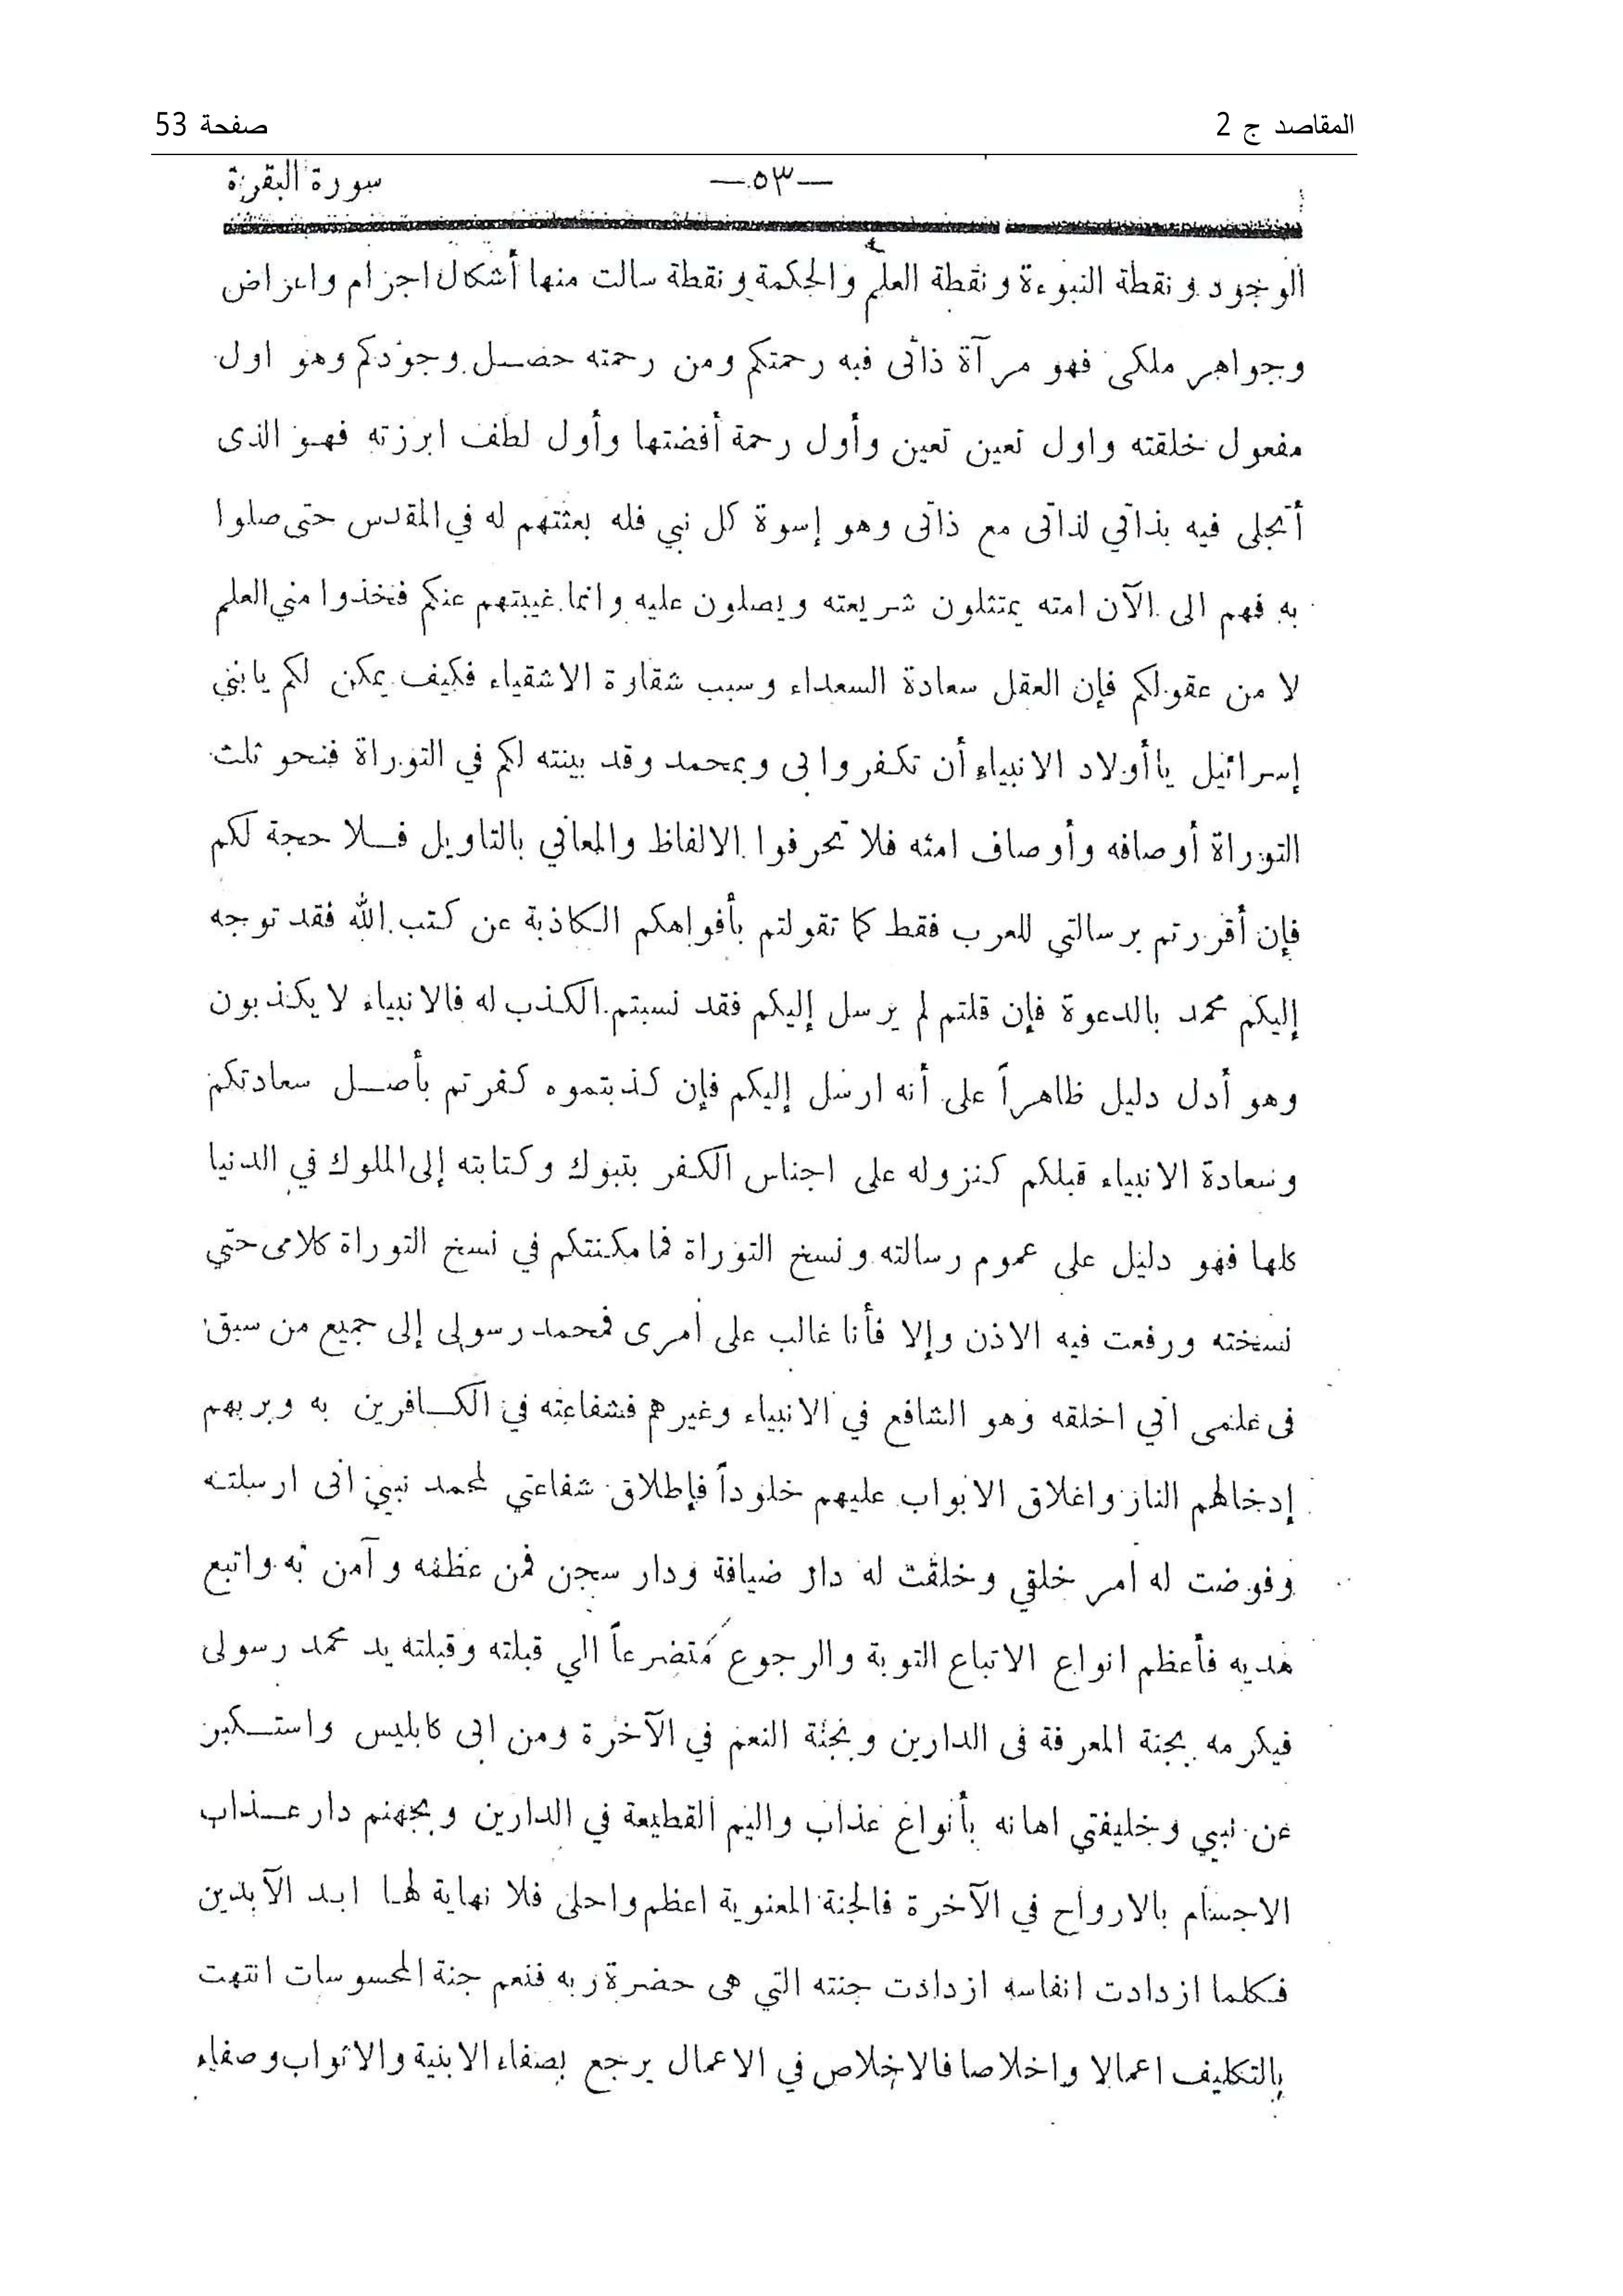 المقاصد ج 2 صفحة 53
—٥٣— سورة البقرة
الوجود ونقطة النبوءة ونقطة العلم والحكمة ونقطة سالت منها أشكال اجزام واعراض
وجواهر ملكى فهو مرآة ذاتى فبه رحمتكم ومن رحمته حصـل وجودكم وهو اول
مفعول خلقته واول تعين تعين وأول رحمة أفضتها وأول لطف ابرزته فهـو الذى
أتجلى فيه بذاتي لذاتى مع ذاتى وهو إسوة كل نبي فله بعثتهم له في المقدس حتى صلوا
به فهم الى الآن امته يمتثلون شريعته ويصلون عليه وانما غيبتهم عنكم فخذوا مني العلم
لا من عقولكم فإن العقل سعادة السعداء وسبب شقارة الاشقياء فكيف يمكن لكم يابني
إسرائيل ياأولاد الانبياء أن تكفروا بى وبمحمد وقد بينته لكم في التوراة فنحو ثلث
التوراة أوصافه وأوصاف امته فلا تحرفوا الالفاظ والمعاني بالتاويل فـلا حجة لكم
فإن أقررتم برسالتي للعرب فقط كما تقولتم بأفواهكم الكاذبة عن كتب الله فقد توجه
إليكم محمد بالدعوة فإن قلتم لم يرسل إليكم فقد نسبتم الكذب له فالانبياء لا يكذبون
وهو أدل دليل ظاهراً على أنه ارسل إليكم فإن كذبتموه كفرتم بأصـل سعادتكم
وسعادة الانبياء قبلكم كنزوله على اجناس الكفر بتبوك وكتابته إلى الملوك في الدنيا
كلها فهو دليل على عموم رسالته ونسخ التوراة فما مكنتكم في نسخ التوراة كلامى حتي
نسخته ورفعت فيه الاذن وإلا فأنا غالب على أمرى فمحمد رسولى إلى جميع من سبق
فى علمى اني اخلقه وهو الشافع في الانبياء وغيرهم فشفاعته في الكـافرين به وبربهم
إدخالهم النار واغلاق الابواب عليهم خلوداً فإطلاق شفاعتي لمحمد نبيي انى ارسلتـه
وفوضت له امر خلقي وخلقت له دار ضيافة ودار سجن فمن عظمه وآمن به واتبع
هديه فأعظم انواع الاتباع التوبة والرجوع متضرعاً الي قبلته وقبلته يد محمد رسولى
فيكرمه بجنة المعرفة فى الدارين وبجنة النعم في الآخرة ومن ابى كابليس واستـكبر
عن نبيي وخليفتي اهانه بأنواع عذاب واليم القطيعة في الدارين وبجهنم دار عـذاب
الاجسام بالارواح في الآخرة فالجنة المعنوية اعظم واحلى فلا نهاية لهـا ابـد الآبدين
فـكلما ازدادت انفاسه ازدادت جنته التي هى حضرة ربه فنعم جنة المحسوسات انتهت
بالتكليف اعمالا واخلاصا فالاخلاص في الاعمال يرجع بصفاء الابنية والاثواب وصفاء